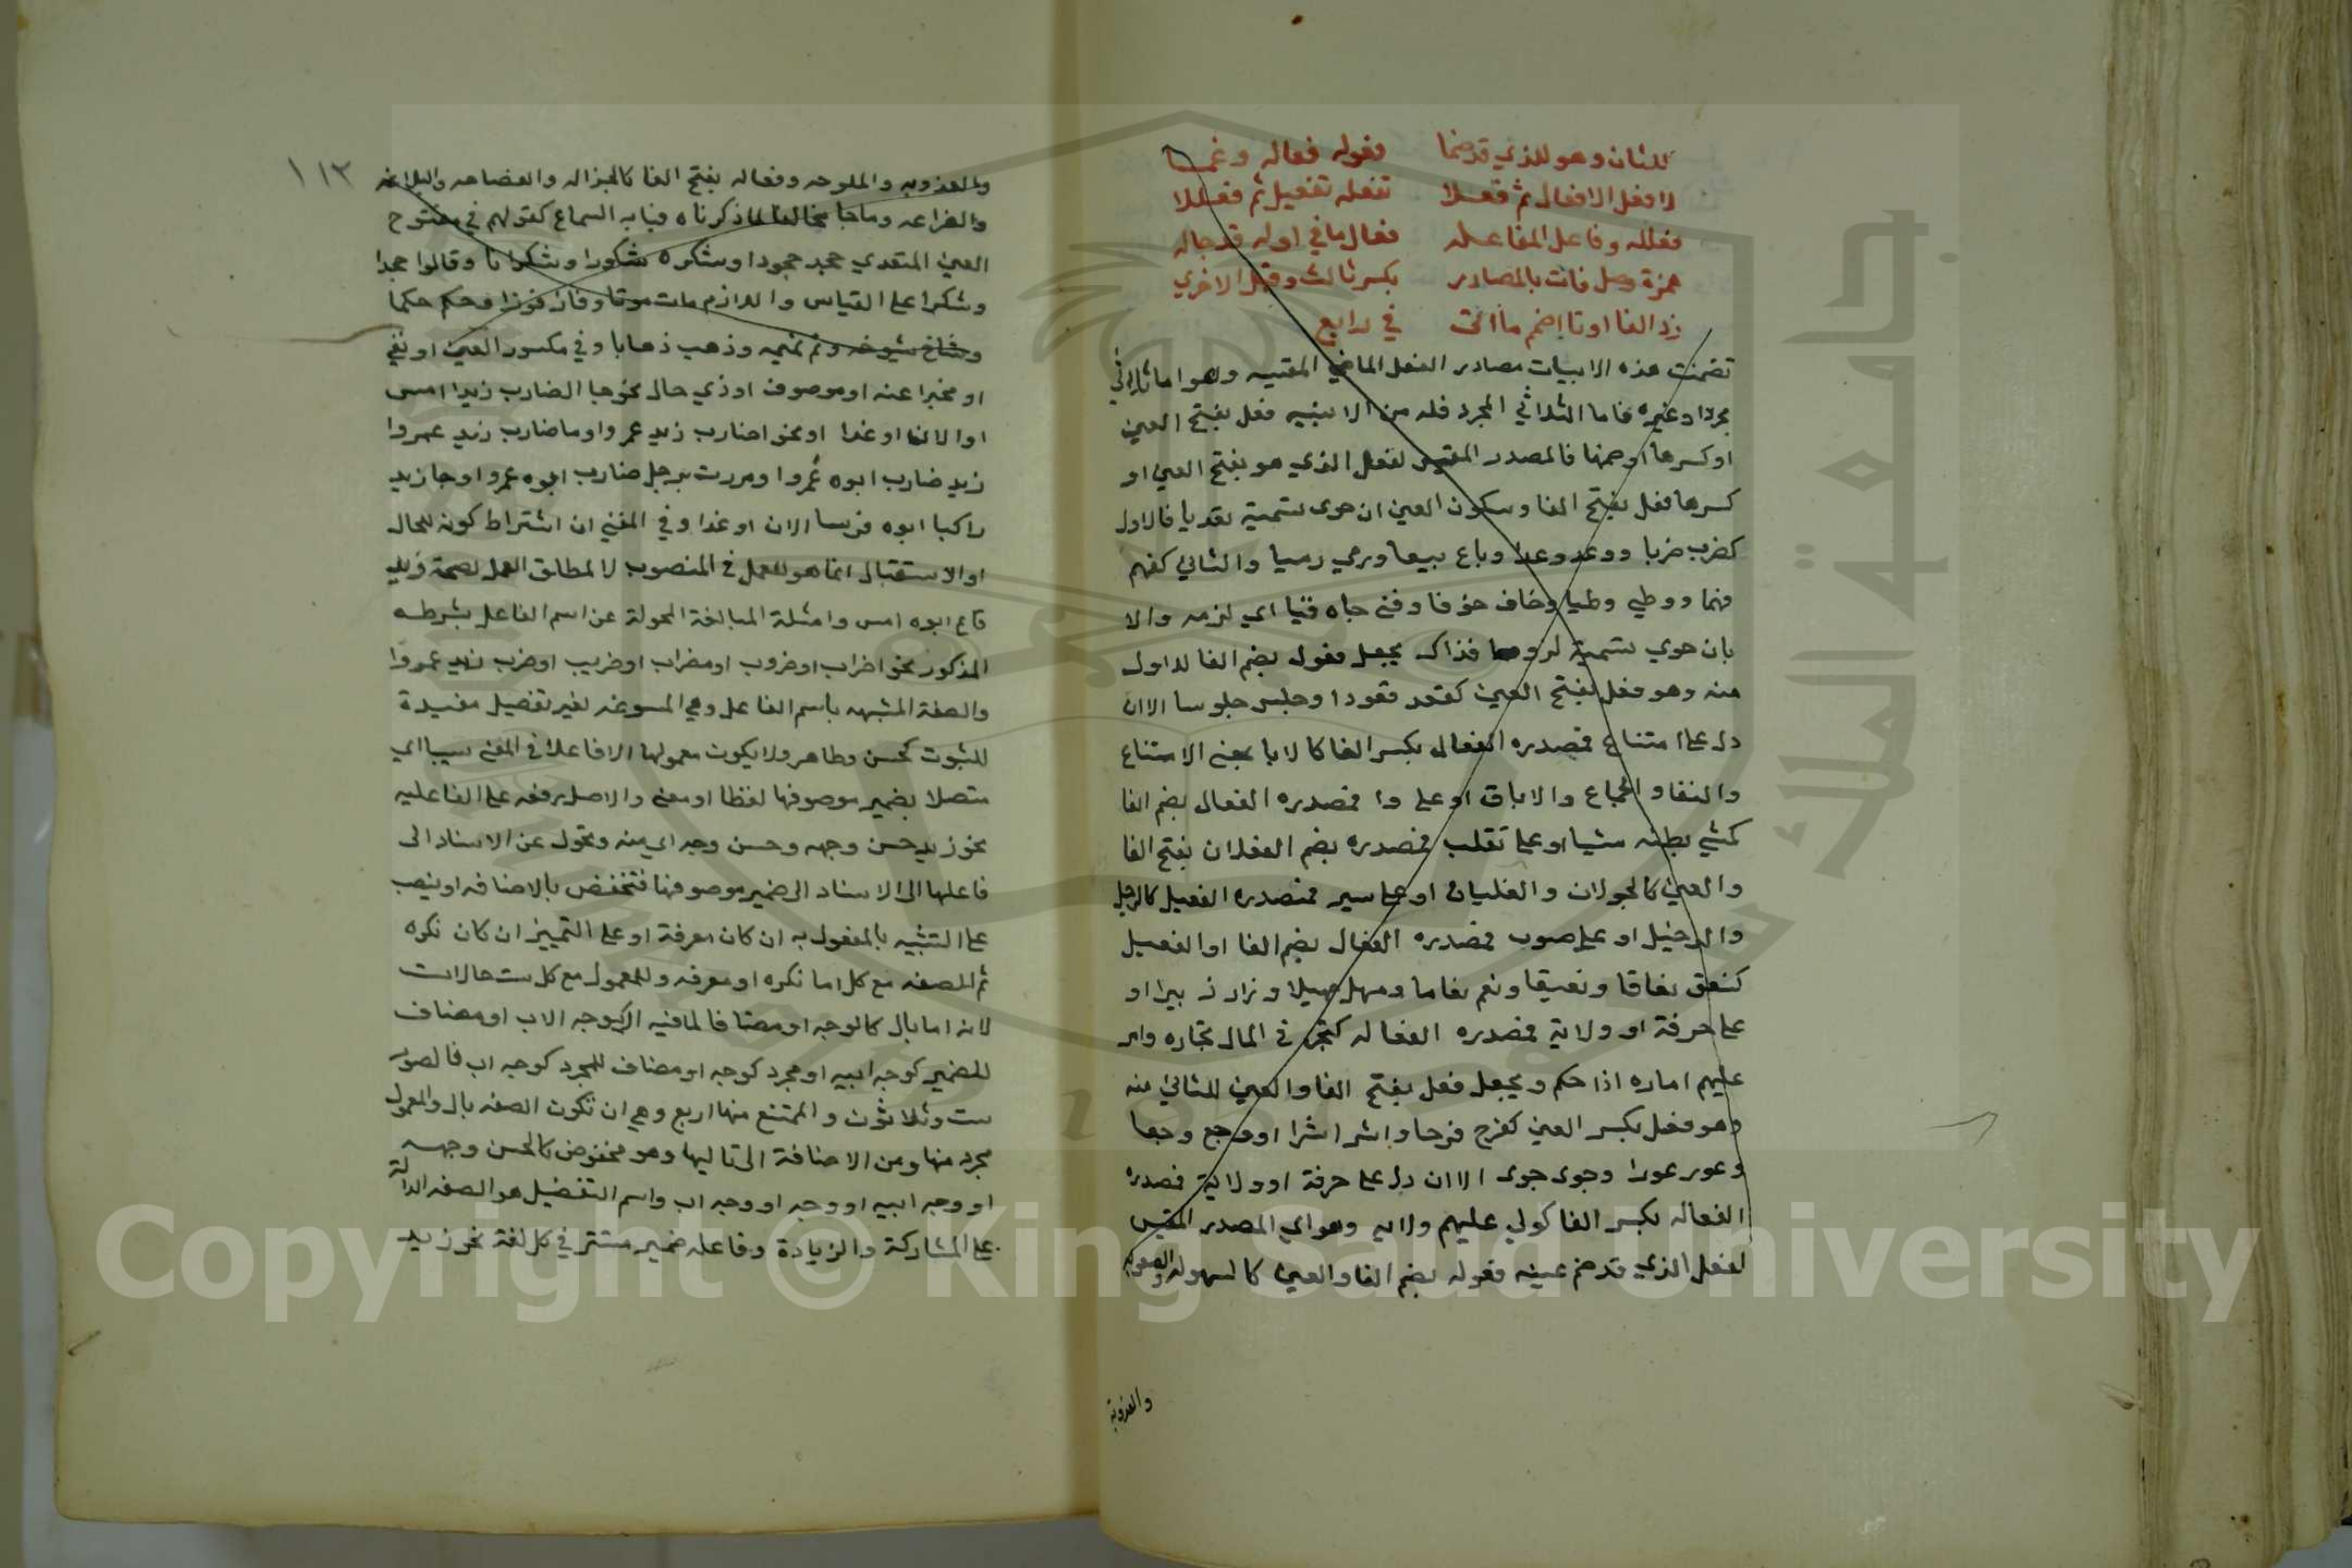 للثان وهو للذي قد ضما فعوله فعاله وعمـما
لا فعل الافعال ثم فعـلا تفعله تفعيل ثم فعللا
فعلله وفاعل المفاعـله فعال ما في اوله قد جاله
همزة وصل فات بالمصادر بكسر ثالث وقبل الاخري
زد الفا او تا اضم ما اتى في رابع
تضمنت هذه الابيات مصادر الفعل الماضي المقيسه وهو اما ثلاثي
مجرد او غيره فاما الثلاثي المجرد فله من الابنيه فعل بفتح العين
او كسرها او ضمها فالمصدر المقيس لفعل الذي هو بفتح العين او
كسرها فعل بفتح الفا وسكون العين ان حوى تسمية تعديا فالاول
كضرب ضربا ووعد وعدا وباع بيعا ورمي رميا والثاني كفهم
فهما ووطي وطيا وخاف خوفا وفنى حياه فنيا اي لزمه والا
بان حوي تسمية لزوما فذاك يجعل فعول بضم الفا للاول
منه وهو فعل بفتح العين كقعد قعودا وجلس جلوسا الا ان
دل على امتناع فمصدره الفعال بكسر الفا كالابا بمعنى الامتناع
والنفار والجماع والاباق او على دا فمصدره الفعال بضم الفا
كمشي بطنه مشيا او على تقلب فمصدره بضم الفعلان بفتح الفا
والعين كالجولان والغليان او على سير فمصدره الفعيل كالرحيل
والدخيل او على صوت فمصدره الفعال بضم الفا او الفعيل
كنعق نعاقا ونعيقا وبغم بغاما وصهل صهيلا وزار زييرا او
على حرفة او ولاية فمصدره الفعاله كتجر في المال تجاره وامر
عليهم اماره اذا حكم ويجعل فعل بفتح الفا والعين للثاني منه
وهو فعل بكسر العين كفرح فرحا واشر اشرا ووجع وجعا
وعور عورا وجوى جوى الا ان دل على حرفة او ولاية فمصدره
الفعاله بكسر الفا كولي عليهم ولايه وهو اي المصدر المقيس
لفعل الذي قد ضم عينه فعوله بضم الفا والعين كالسهوله والصعوبه
والعذوبة
١١٣
والعذوبه والملوحه وفعاله بفتح الفا كالجزاله والفصاحه والبلاغه
والضراعه وما جا مخالفا لما ذكرناه فبابه السماع كقولهم في مفتوح
العين المتعدي جحد جحودا وشكره شكورا وشكرانا وقالوا جحدا
وشكرا على القياس واللازم مات موتا وفاز فوزا وحكم حكما
وشاخ شيوخه ونم نميمه وذهب ذهابا وفي مكسور العين او نفي
او مخبرا عنه او موصوف او ذي حال نحو جا الضارب زيدا امس
او الان او غدا او نحو اضارب زيد عمروا وما ضارب زيد عمروا
زيد ضارب ابوه عمروا ومررت برجل ضارب ابوه عمروا وجا زيد
راكبا ابوه فرسا الان او غدا وفي المغني ان اشتراط كونه للحال
او الاستقبال انما هو للعمل في المنصوب لا لمطلق العمل لصحة زيد
قايم ابوه امس وامثلة المبالغة المحولة عن اسم الفاعل بشرطه
المذكور نحو اضراب او ضروب او مضراب او ضريب او ضرب زيد عمروا
والصفة المشبهه باسم الفاعل وهي المسوغه لغير تفضيل مفيدة
للثبوت كحسن وطاهر ولا يكون معمولها الا فاعلا في المعنى سببيا اي
متصلا بضمير موصوفها لفظا او معنى والاصل رفعه على الفاعليه
نحو زيد حسن وجهه وحسن وجه اي منه وتحول عن الاسناد الى
فاعلها الى الاسناد الى ضمير موصوفها فتخفض بالاضافه او ينصب
على التشبيه بالمفعول به ان كان معرفة او على التمييز ان كان نكره
ثم الصفه مع كل اما نكره او معرفه وللمعمول مع كل ست حالات
لانه اما بال كالوجه او مضاف لما فيه ال كوجه الاب او مضاف
للضمير كوجه ابيه او مجرد كوجه او مضاف للمجرد كوجه اب فالصور
ست وثلاثون والممتنع منها اربع وهي ان تكون الصفه بال والمعمول
مجرد منها ومن الاضافة الى تاليها وهو مخفوض كالحسن وجهه
او وجه ابيه او وجه او وجه اب واسم التفضيل هو الصفه الدالة
على المشاركة والزيادة وفاعله ضمير مستتر في كل لغة نحو زيد
جامعة الملك سعود
Copyright © King Saud University